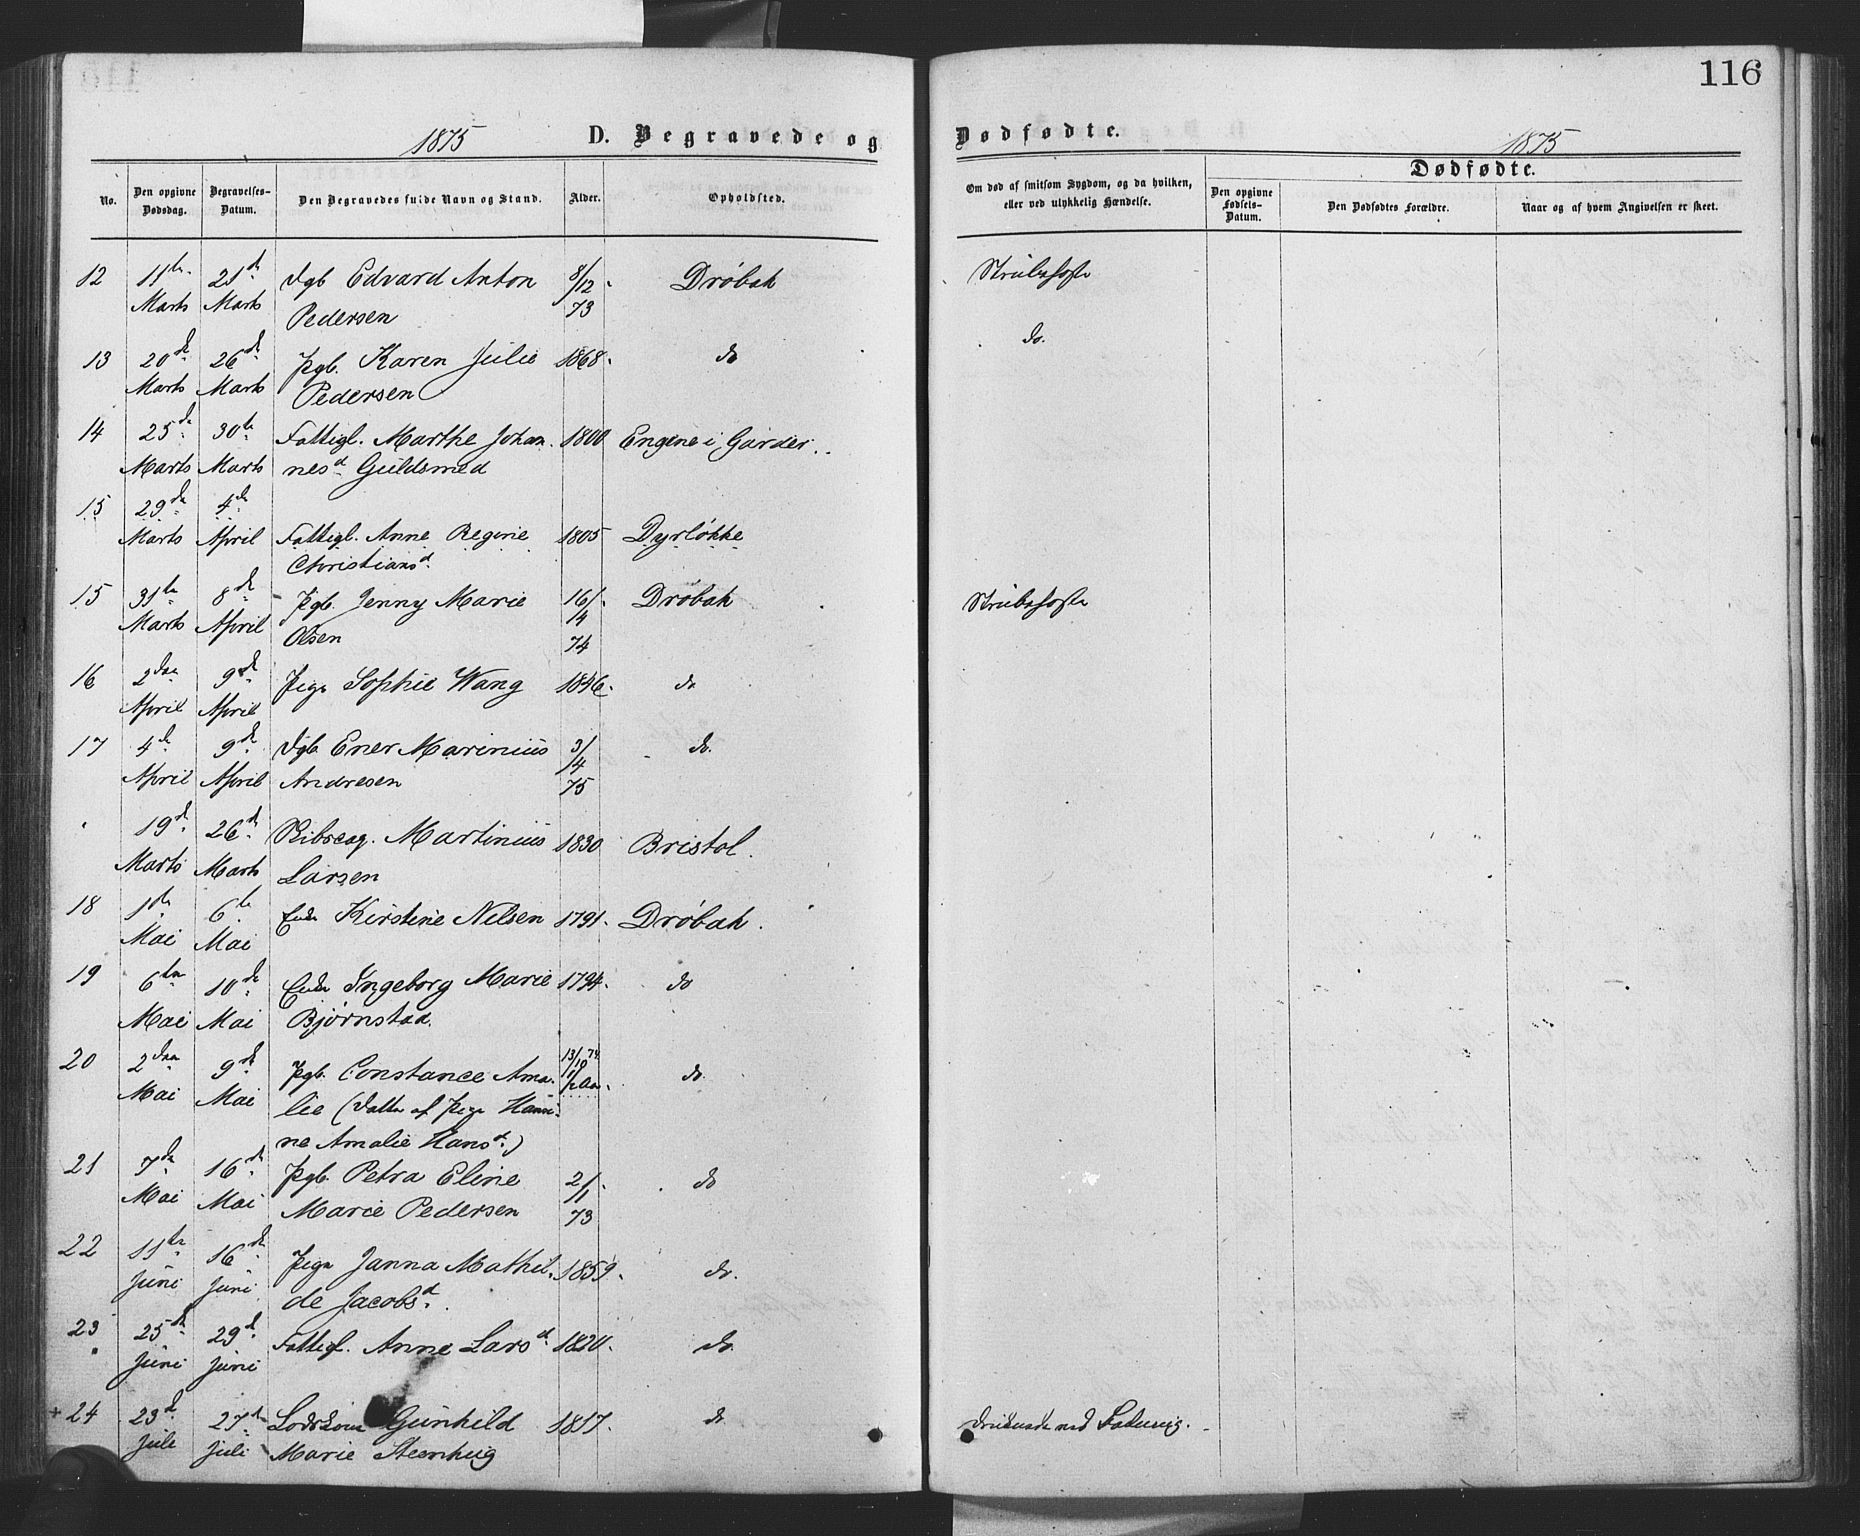 116
1875 D. Begravede og Dødfødte. 1875
No.
Den opgivne Dødsdag.
Begravelses-Datum.
Den Begravedes fulde Navn og Stand.
Alder.
Opholdsted.
Om død af smitsom Sygdom, og da hvilken,
eller ved ulykkelig Hændelse.
Dødfødte.
Den opgivne Fødsels-Datum.
Den Dødfødtes Forældre.
Naar og af hvem Angivelsen er skeet.
12 11te 21de Dgb Edvard Anton 8/12 Drøbak Strubehoste
Marts Marts Pedersen 73
13 20de 26de Pgb. Karen Julie 1868. do do.
Marts Marts Pedersen
14 25de 30te Fattigl. Marthe Johan- 1800 Engene i Garder.
Marts Marts nesd. Guldsmed
15 29de 4de
Marts April Fattigl. Anne Regine 1805 Dyrløkke
Christiansd.
15 31te 8de Pgb. Jenny Marie 16/4 Drøbak Strubehoste
Marts April Olsen 74
16 2den 9de Pige Sophie Wang 1846. do
April April
17 4de 9de Dgb Ener Marinius 3/4 do.
April April Andresen 75
19de 26de Martinius 1830 Bristol.
Marts Marts Larsen
18 1ste 6te Enke Kirstine Nilsen 1791. Drøbak.
Mai Mai
19 6te 10de Enke Ingeborg Marie 1794. do
Mai Mai Bjørnstad.
20 2den 9de Pgb. Constance Ama- 13/10 74 do
Mai Mai lie (Datter af Pige Hansi-
ne Amalie Hansd.)
21 7de 16de Pgb. Petra Eline 2/1 do
Mai Mai Marie Pedersen 73
22 11te 16de Pige Janna Mathil- 1859. do.
Juni Juni de Jacobsd.
23 25de 29de Fattigl. Anne Larsd. 1820. do
Juni Juni
+ 24 23de 27de Gunhild 1817. do druknede ved
Juli Juli Marie Steenhug